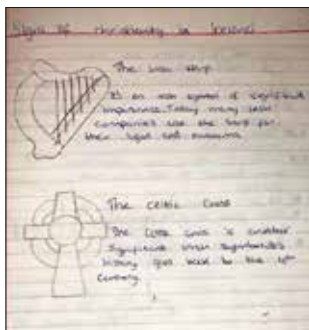 Signs of christianity in Ireland
The Irish Harp
is an irish symbol of significant
importance. Today many irish
companies use the harp for
their logos and
The Celtic Cross
The Celtic cross is another
significant irish
history goes back to the
Century